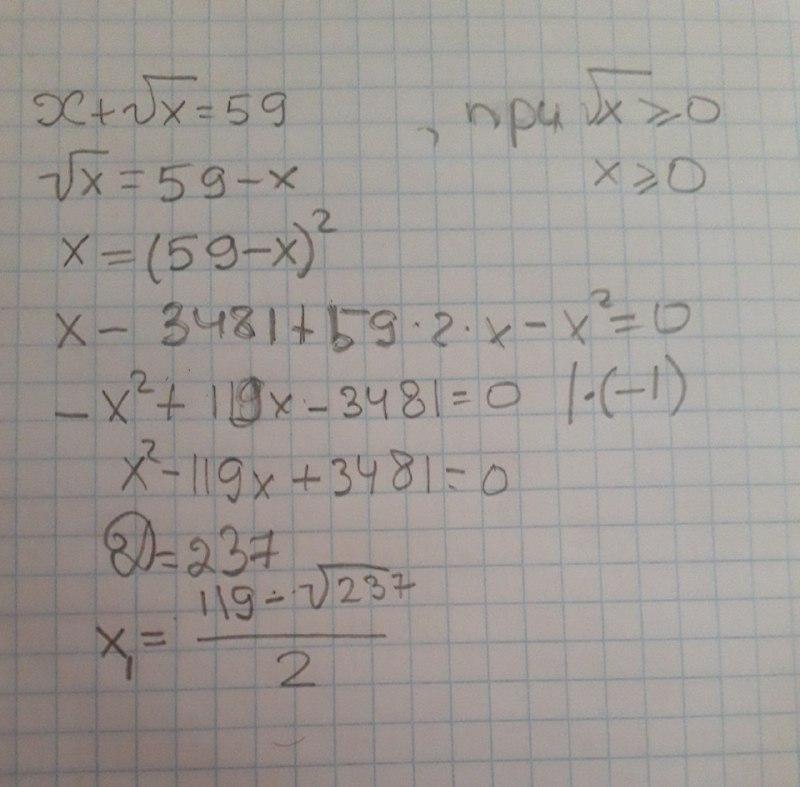 x+√x=59 , при √x ≥0
√x = 59-x x ≥0
x=(59-x)²
x - 3481+59·2·x-x²=0
-x²+119x-3481=0 |·(-1)
x²-119x+3481=0
D=237
x₁= (119-√237)/2